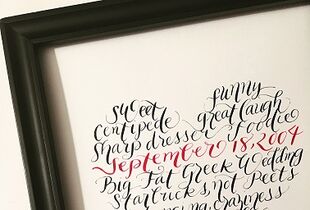 sweet funny
centipede great laugh
sharp dresser foodie
September 18, 2004
Big Fat Greek Wedding
Starbucks, not Peets